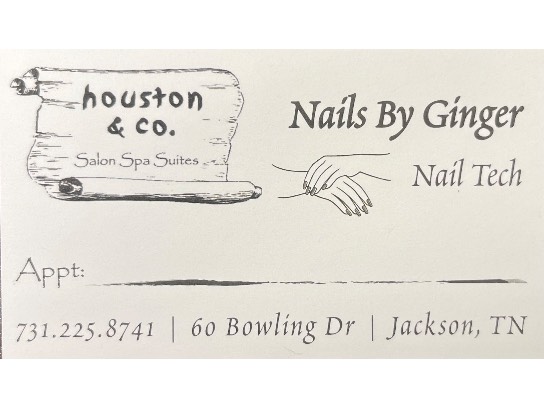 houston
& co.
Salon Spa Suites
Nails By Ginger
Nail Tech
Appt:
731.225.8741 | 60 Bowling Dr | Jackson, TN